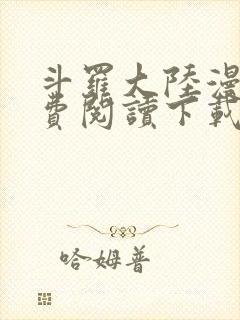 斗羅大陸漫
費閱讀下載
哈姆普